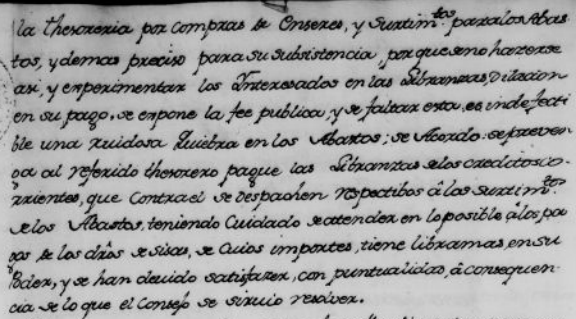 la thesoreria por compras de Enseres, y Surtim.tos para los Abas
tos, y demas preciso para su subsistencia, porque seno hazerse
asi, y experimentar los Ynteresados en las Libranzas, Dilacion
en su pago, se expone la fee publica, y se faltar esta, es indefecti
ble una ruidosa Quiebra en los Abastos; se Acordo: se preven
ga al referido thesorero pague las Libranzas de los creditos co
rrientes, que Contra el se Despachen respectibos â los Surtim.tos
de los Abastos, teniendo Cuidado de atender en lo posible â los pa
gos de los dros de sisas, de Cuios importes, tiene libramas, en su
Poder, y se han devido satisfazer, con puntualidad, â consequen
cia de lo que el Consejo se sirvio resolver.